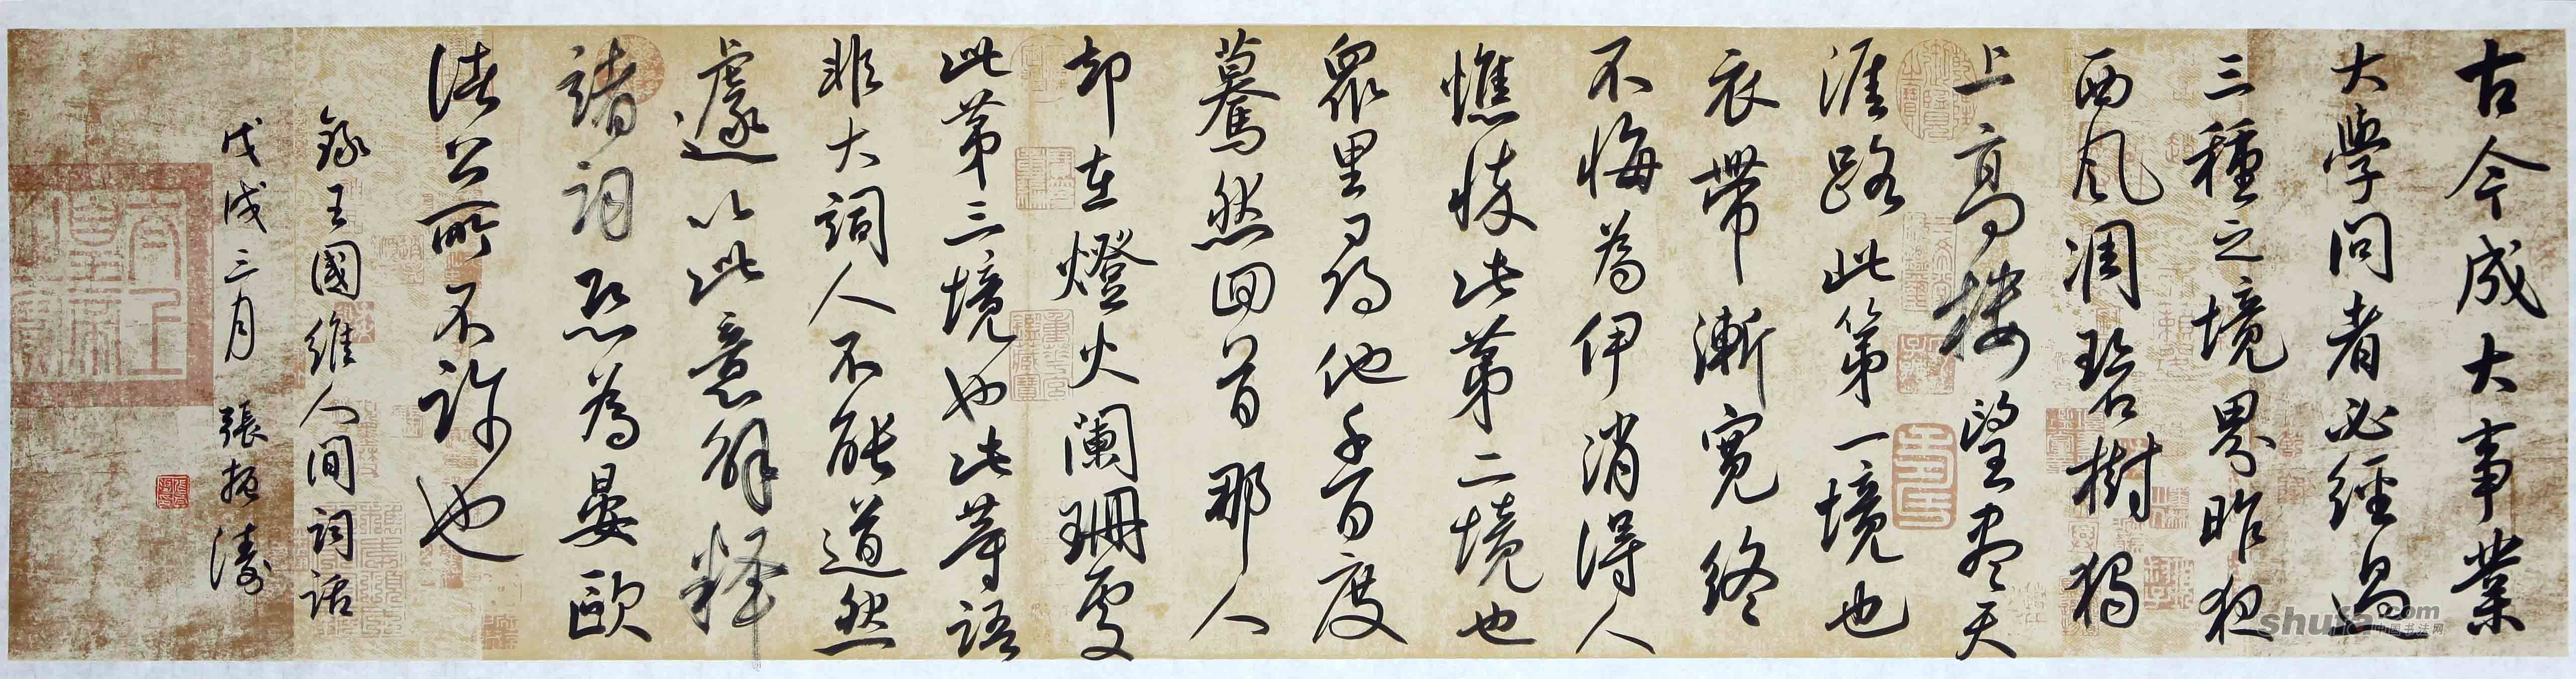 古今成大事業
大學問者必經過
三種之境界昨夜
西風凋碧樹獨
上高樓望盡天
涯路此第一境也
衣帶漸寬終
不悔為伊消得人
憔悴此第二境也
眾里尋他千百度
驀然回首那人
却在燈火闌珊處
此第三境也此等語
非大詞人不能道然
遽以此意解釋
諸詞恐為晏歐
諸公所不許也
錄王國維人間詞話
戊戌三月 張振濤
shufa.com
中国书法网